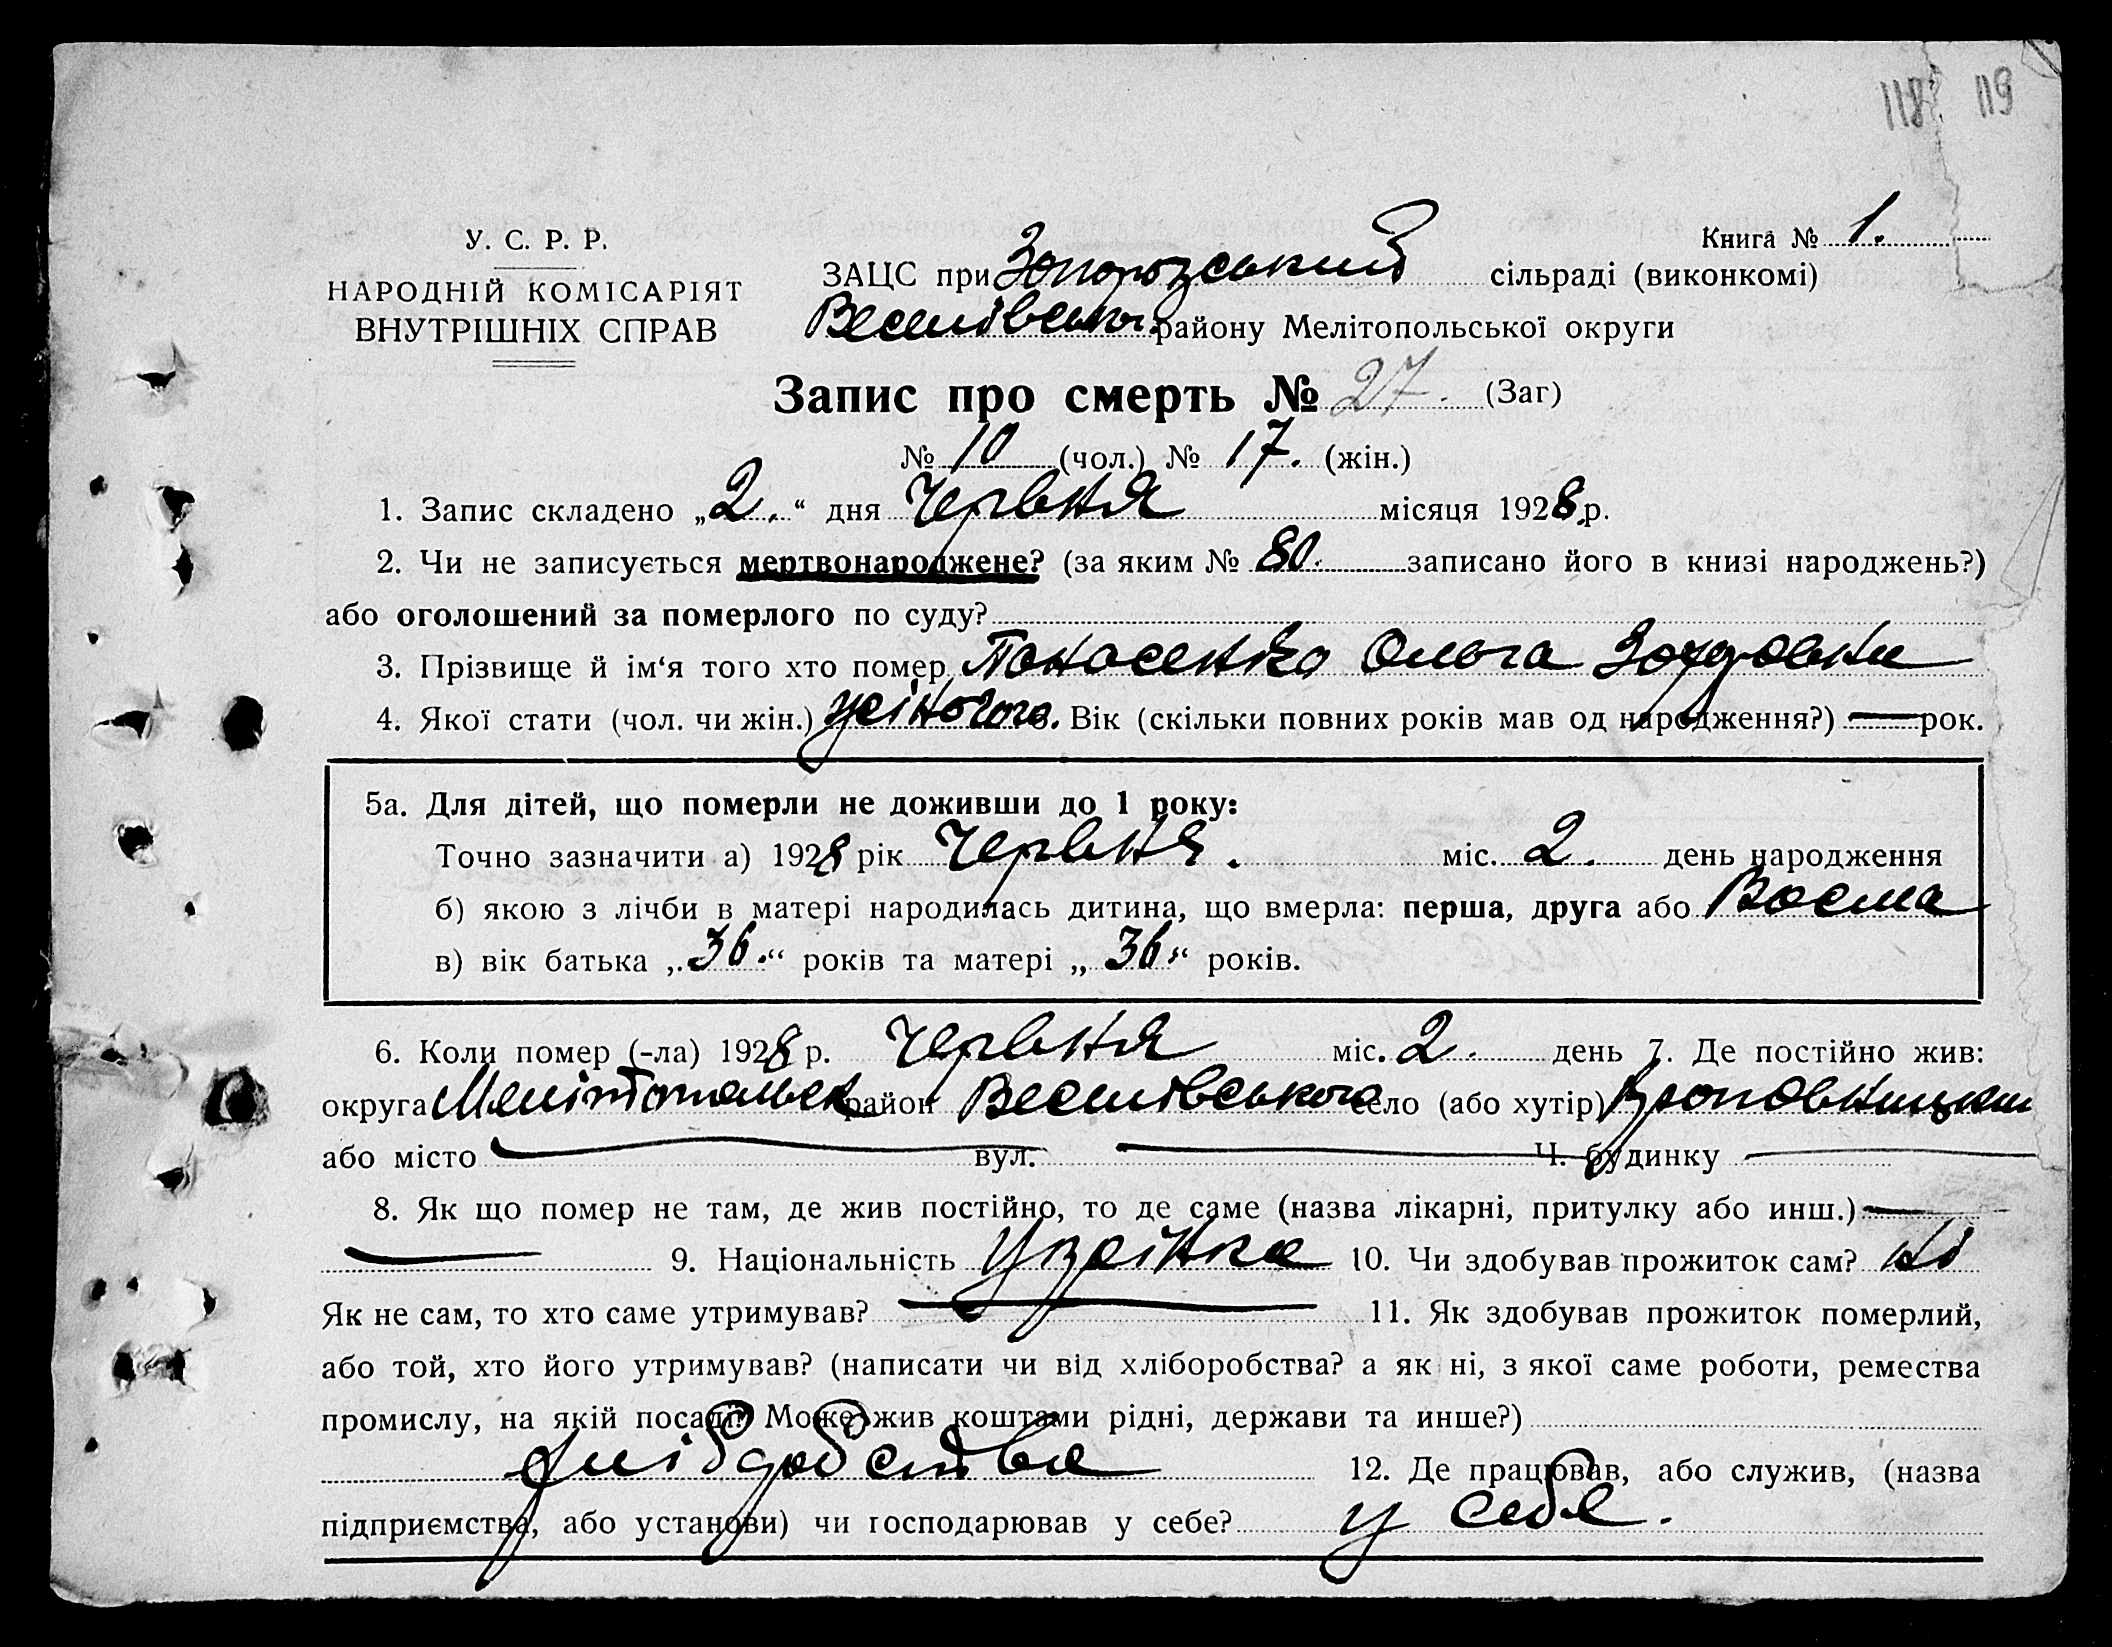 118 119
У. С. Р. Р.
НАРОДНІЙ КОМІСАРІЯТ
ВНУТРІШНІХ СПРАВ
Книга № 1.
ЗАЦС при сільраді (виконкомі)
Веселівськ. району Мелітопольської округи
Запис про смерть № 27. (Заг)
№ 10 (чол.) № 17. (жін.)
1. Запис складено „2.“ дня Червня місяця 1928 р.
2. Чи не записується мертвонароджене? (за яким № 80. записано його в книзі народжень?)
або оголошений за померлого по суду?
3. Прізвище й ім‘я того хто помер Панасенко Ольга
4. Якої стати (чол. чи жін.) жіночого. Вік (скільки повних років мав од народження?) — рок.
5а. Для дітей, що померли не доживши до 1 року:
Точно зазначити а) 1928 рік Червня. міс. 2. день народження
б) якою з лічби в матері народилась дитина, що вмерла: перша, друга або Восма
в) вік батька „36.“ років та матері „36“ років.
6. Коли помер (-ла) 1928 р. Червня міс. 2. день 7. Де постійно жив:
округа Мелітопольск район Веселівського село (або хутір)
або місто — вул. — Ч. будинку —
8. Як що помер не там, де жив постійно, то де саме (назва лікарні, притулку або инш.) —
— 9. Національність 10. Чи здобував прожиток сам? ні
Як не сам, то хто саме утримував? — 11. Як здобував прожиток померлий,
або той, хто його утримував? (написати чи від хліборобства? а як ні, з якої саме роботи, ремества
промислу, на якій посаді? Може жив коштами рідні, держави та инше?)
12. Де працював, або служив, (назва
підприємства, або установи) чи господарював у себе? у себе.